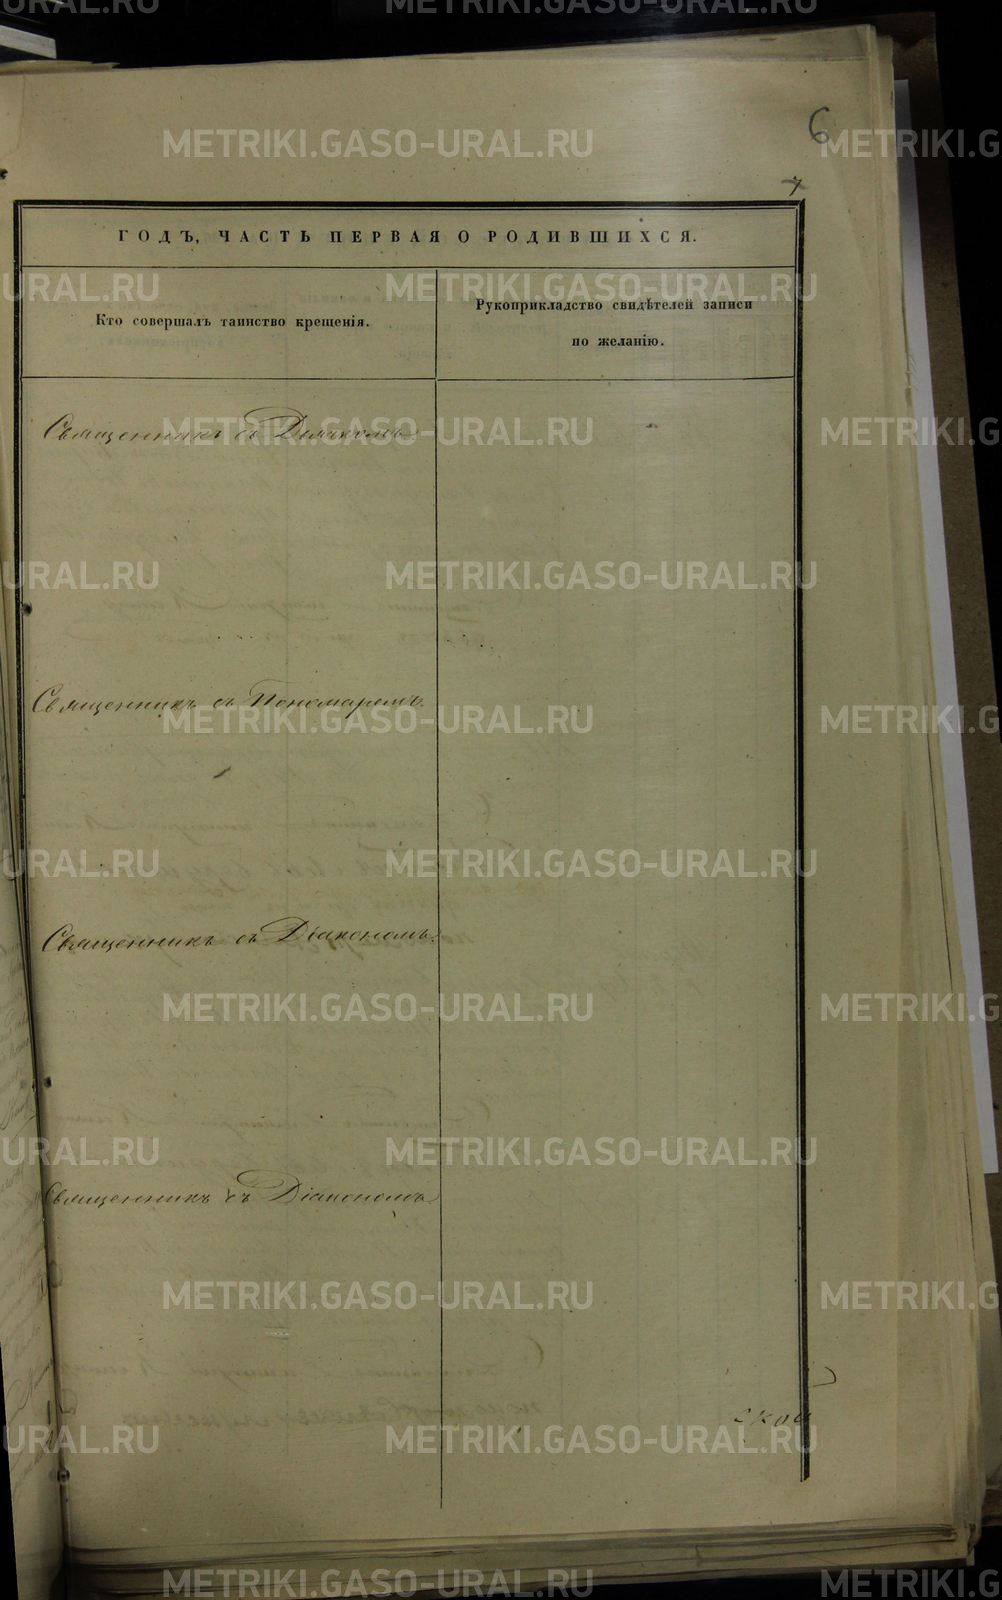 6
7
ГОДЪ, ЧАСТЬ ПЕРВАЯ О РОДИВШИХСЯ.
Кто совершалъ таинство крещенія.
Рукоприкладство свидѣтелей записи
по желанію.
Священникъ съ Діакономъ
Священникъ съ Пономаремъ.
Священникъ съ Діакономъ.
Священникъ съ Діакономъ
ской
METRIKI.GASO-URAL.RU